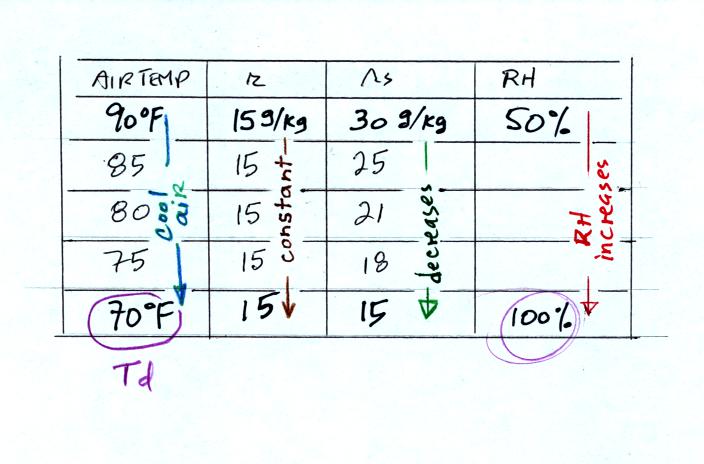 AIR TEMP r rs RH
90°F 15 g/kg 30 g/kg 50%
85 15 25
80 15 21
75 15 18
70°F 15 15 100%
cool air
constant
decreases
RH increases
Td